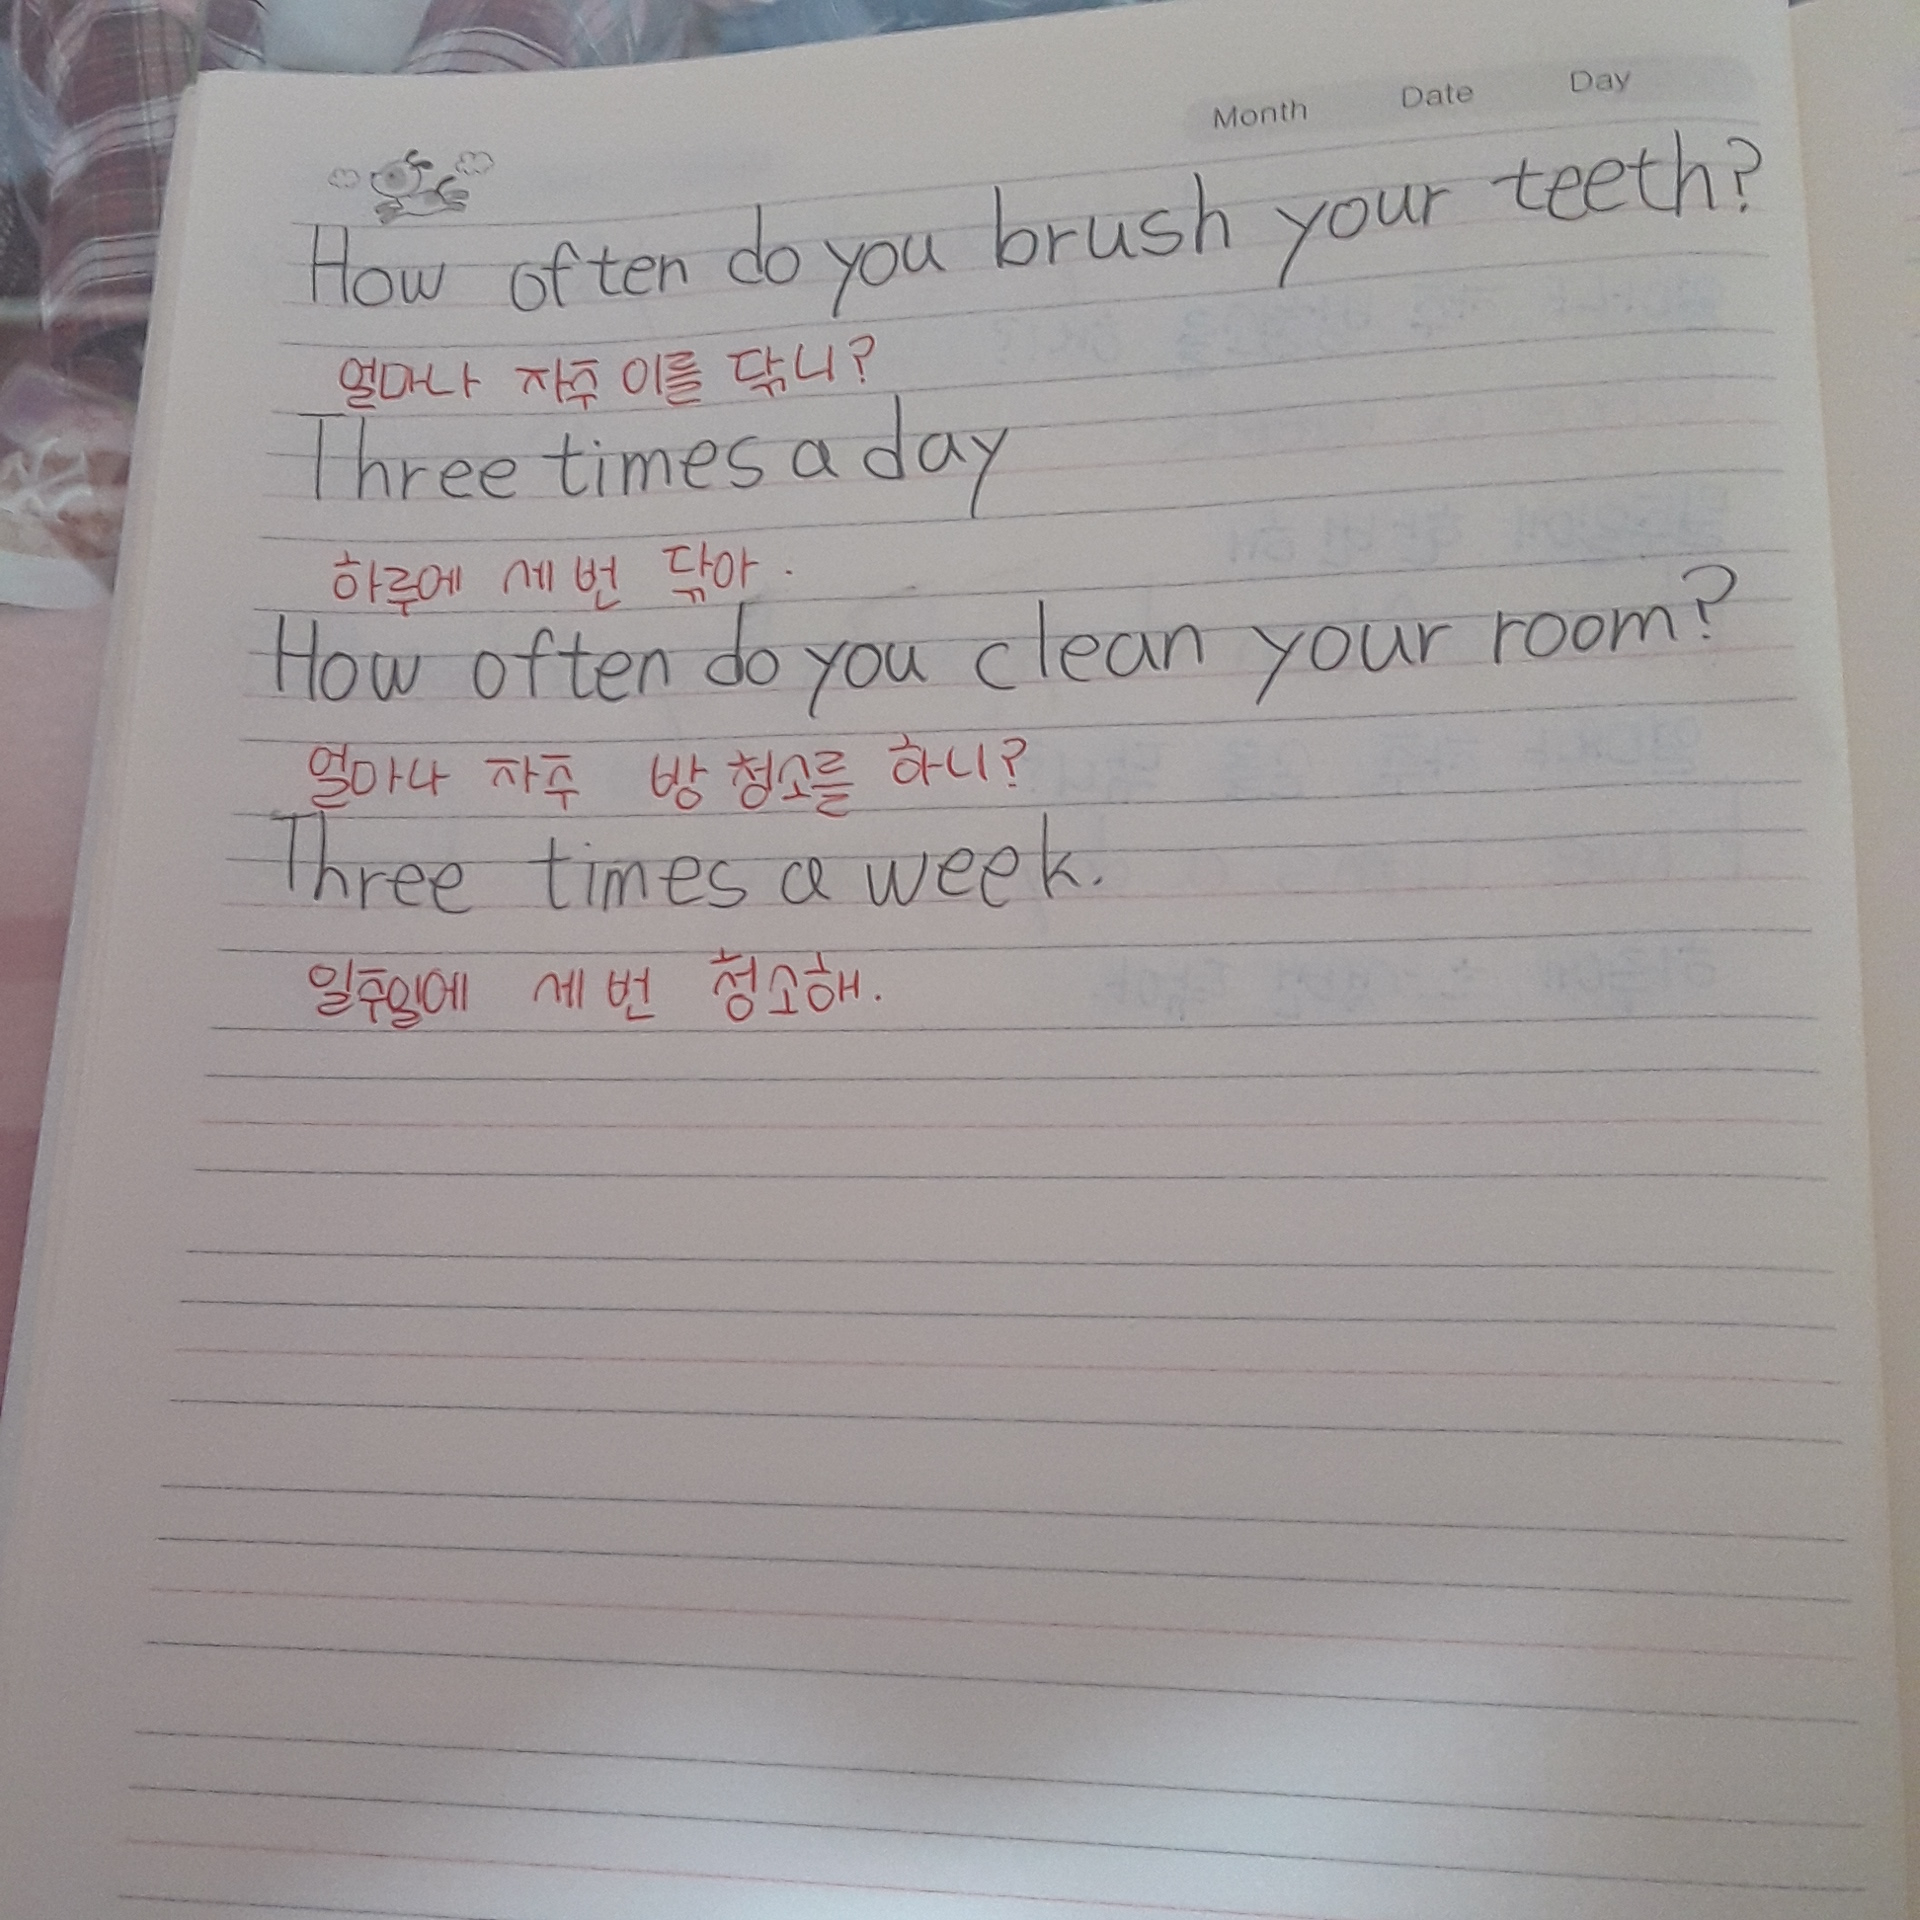 Month Date Day
How often do you brush your teeth?
얼마나 자주 이를 닦니?
Three times a day
하루에 세 번 닦아.
How often do you clean your room?
얼마나 자주 방 청소를 하니?
Three times a week.
일주일에 세 번 청소해.